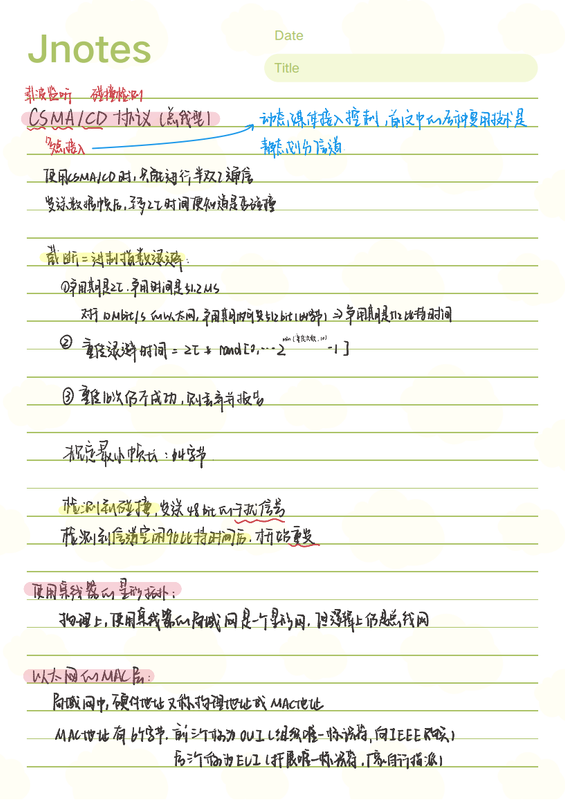 Jnotes
Date
Title
载波监听 碰撞检测
CSMA/CD 协议（总线型）
多点接入
动态媒体接入控制，首文中的后种复用技术是
静态划分信道
使用CSMA/CD时，只能进行半双工通信
发送数据帧后，至多2τ时间便知道是否碰撞
截断二进制指数退避：
①争用期是2τ，争用时间是51.2μs
对于10Mbit/s的以太网，争用期内可发512bit(64字节) ⇒ 争用期是512比特时间
② 重传退避时间 = 2τ * rand[0,...2^min(重传次数,10) -1]
③ 重传16次仍不成功，则丢弃并报告
规定最小帧长：64字节
检测到碰撞，发送48bit的干扰信号
检测到信道空闲96比特时间后，才开始重发
使用集线器的星形拓扑：
物理上，使用集线器的局域网是一个星形网，但逻辑上仍是总线网
以太网的MAC层：
局域网中，硬件地址又称物理地址或MAC地址
MAC地址有6字节，前三个称为OUI（组织唯一标识符，向IEEE购买）
后三个称为EUI（扩展唯一标识符，厂家自行指派）